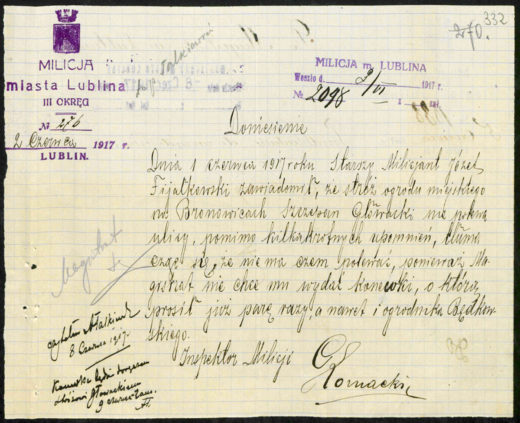 332
270.
MILICJA
miasta Lublina
III OKRĘG
№ 276
2 Czerwca 1917 r.
LUBLIN.
MILICJA m. LUBLINA
Weszło d. 9/VI 1917 r.
№ 2098
Doniesienie
Dnia 1 czerwca 1917 roku Starszy Milicjant Józef
Fijałkowski zawiadomił, że stróż ogrodu miejskiego
na Bronowicach Szczepan Głowacki nie polewa
ulicy, pomimo kilkakrotnych upomnień, tłuma
cząc się, że nie ma czem polewać, ponieważ Ma
gistrat nie chce mu wydać konewki, o którą
prosił już parę razy, a nawet i ogrodnika Będkow
skiego.
Inspektor Milicji
Magistrat
8 Czerwca 1917.
Konewka będzie
Głowackiemu
9 czerwca